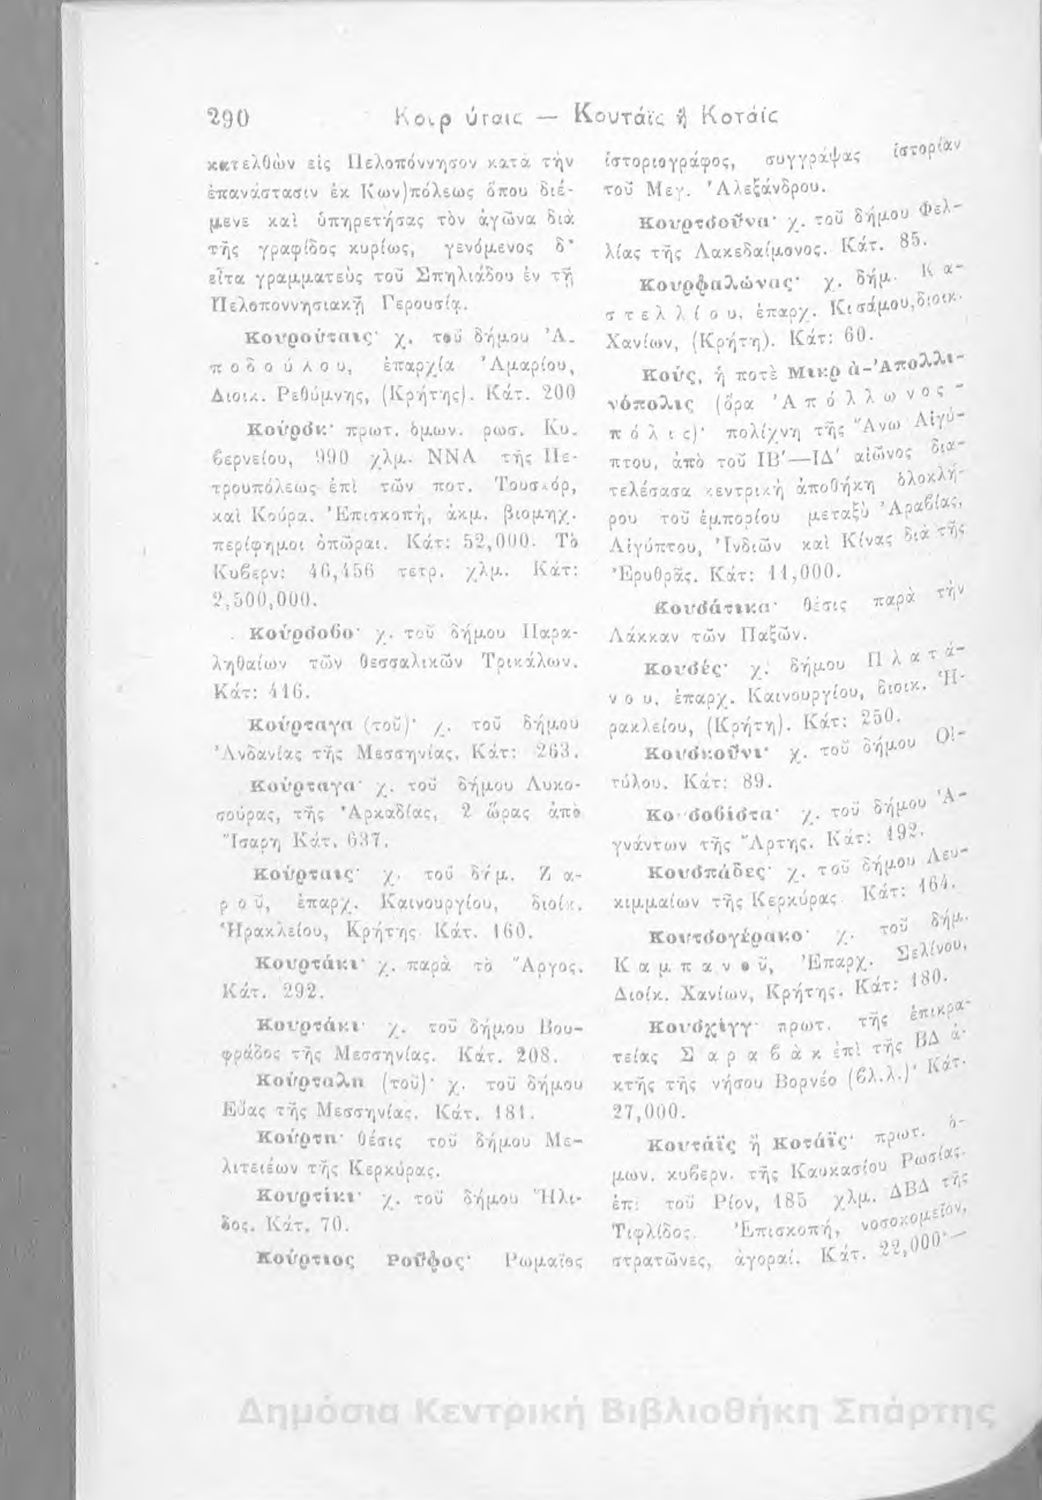 290 Κουρούταις — Κουτάϊς ἢ Κοτάϊς
κατελθὼν εἰς Πελοπόννησον κατὰ τὴν
ἐπανάστασιν ἐκ Κων)πόλεως ὅπου διέ-
μενε καὶ ὑπηρετήσας τὸν ἀγῶνα διὰ
τῆς γραφίδος κυρίως, γενόμενος δ'
εἶτα γραμματεὺς τοῦ Σπηλιάδου ἐν τῇ
Πελοποννησιακῇ Γερουσίᾳ.
Κουρούταις· χ. τοῦ δήμου 'Α-
ποδούλου, ἐπαρχία 'Αμαρίου,
Διοικ. Ρεθύμνης, (Κρήτης). Κάτ. 200
Κούρσκ· πρωτ. ὁμων. ρωσ. Κυ-
βερνείου, 990 χλμ. ΝΝΑ τῆς Πε-
τρουπόλεως ἐπὶ τῶν ποτ. Τουσκόρ,
καὶ Κούρα. 'Επισκοπή, ἀκμ. βιομηχ.
περίφημοι ὀπῶραι. Κάτ: 52,000. Τὸ
Κυβερν: 46,456 τετρ. χλμ. Κάτ:
2,500,000.
Κούρσοβο· χ. τοῦ δήμου Παρα-
ληθαίων τῶν Θεσσαλικῶν Τρικάλων.
Κάτ: 416.
Κούρταγα (τοῦ)· χ. τοῦ δήμου
'Ανδανίας τῆς Μεσσηνίας. Κάτ: 263.
Κούρταγα· χ. τοῦ δήμου Λυκο-
σούρας, τῆς 'Αρκαδίας, 2 ὥρας ἀπὸ
Ἴσαρη Κάτ. 637.
Κούρταις· χ. τοῦ δήμ. Ζα-
ροῦ, ἐπαρχ. Καινουργίου, διοίκ.
Ἡρακλείου, Κρήτης Κάτ. 160.
Κουρτάκι· χ. παρὰ τὸ Ἄργος.
Κάτ. 292.
Κουρτάκι· χ. τοῦ δήμου Βου-
φράδος τῆς Μεσσηνίας. Κάτ. 208.
Κούρταλη (τοῦ)· χ. τοῦ δήμου
Εὔας τῆς Μεσσηνίας. Κάτ. 181.
Κούρτη· θέσις τοῦ δήμου Με-
λιτειέων τῆς Κερκύρας.
Κουρτίκι· χ. τοῦ δήμου Ἤλι-
δος. Κάτ. 70.
Κούρτιος Ροῦφος· Ρωμαῖος
ἱστοριογράφος, συγγράψας ἱστορίαν
τοῦ Μεγ. 'Αλεξάνδρου.
Κουρτσοῦνα· χ. τοῦ δήμου Φελ-
λίας τῆς Λακεδαίμονος. Κάτ. 85.
Κουρφαλώνας· χ. δήμ. Κα-
στελλίου, ἐπαρχ. Κισάμου, διοικ.
Χανίων, (Κρήτη). Κάτ: 60.
Κοὺς, ἢ ποτὲ Μικρὰ-'Απολλι-
νόπολις (ὅρα 'Απόλλωνος -
πόλις)· πολίχνη τῆς Ἄνω Αἰγύ-
πτου, ἀπὸ τοῦ ΙΒ'—ΙΔ' αἰῶνος δια-
τελέσασα κεντρικὴ ἀποθήκη ὁλοκλή-
ρου τοῦ ἐμπορίου μεταξὺ 'Αραβίας,
Αἰγύπτου, 'Ινδιῶν καὶ Κίνας διὰ τῆς
'Ερυθρᾶς. Κάτ: 11,000.
Κουσάτικα· θέσις παρὰ τὴν
Λάκκαν τῶν Παξῶν.
Κουσές· χ. δήμου Πλατά-
νου, ἐπαρχ. Καινουργίου, διοικ. Ἡ-
ρακλείου, (Κρήτη). Κάτ: 250.
Κουσκοῦνι· χ. τοῦ δήμου Οἰ-
τύλου. Κάτ: 89.
Κουσοβίστα· χ. τοῦ δήμου 'Α-
γνάντων τῆς Ἄρτης. Κάτ: 492.
Κουσπάδες· χ. τοῦ δήμου Λευ-
κιμμαίων τῆς Κερκύρας Κάτ: 164.
Κουτσογέρακο· χ. τοῦ δήμ.
Καμπανοῦ, 'Επαρχ. Σελίνου,
Διοίκ. Χανίων, Κρήτης. Κάτ: 180.
Κουσχὶγγ· πρωτ. τῆς ἐπικρα-
τείας Σαραβὰκ ἐπὶ τῆς ΒΔ ἀ-
κτῆς τῆς νήσου Βορνέο (βλ.λ.)· Κάτ.
27,000.
Κουτάϊς ἢ Κοτάϊς· πρωτ. ὁ-
μων. κυβερν. τῆς Καυκασίου Ρωσίας.
ἐπὶ τοῦ Ρίον, 185 χλμ. ΔΒΔ τῆς
Τιφλίδος. 'Επισκοπή, νοσοκομεῖον,
στρατῶνες, ἀγοραί. Κάτ. 22,000·—
Δημόσια Κεντρική Βιβλιοθήκη Σπάρτης